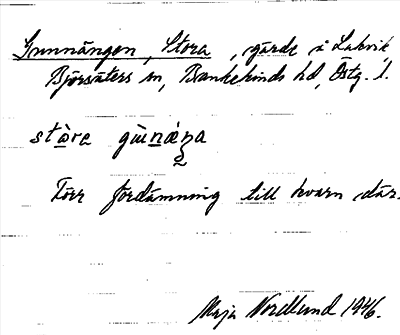 Gunnängen, Stora, gärde i Lakvik,
Björsäters sn, Bankekinds hd, Östg. l.
stòra gùnæŋa
Förr fördämning till kvarn där.
Maja Nordlund 1946.